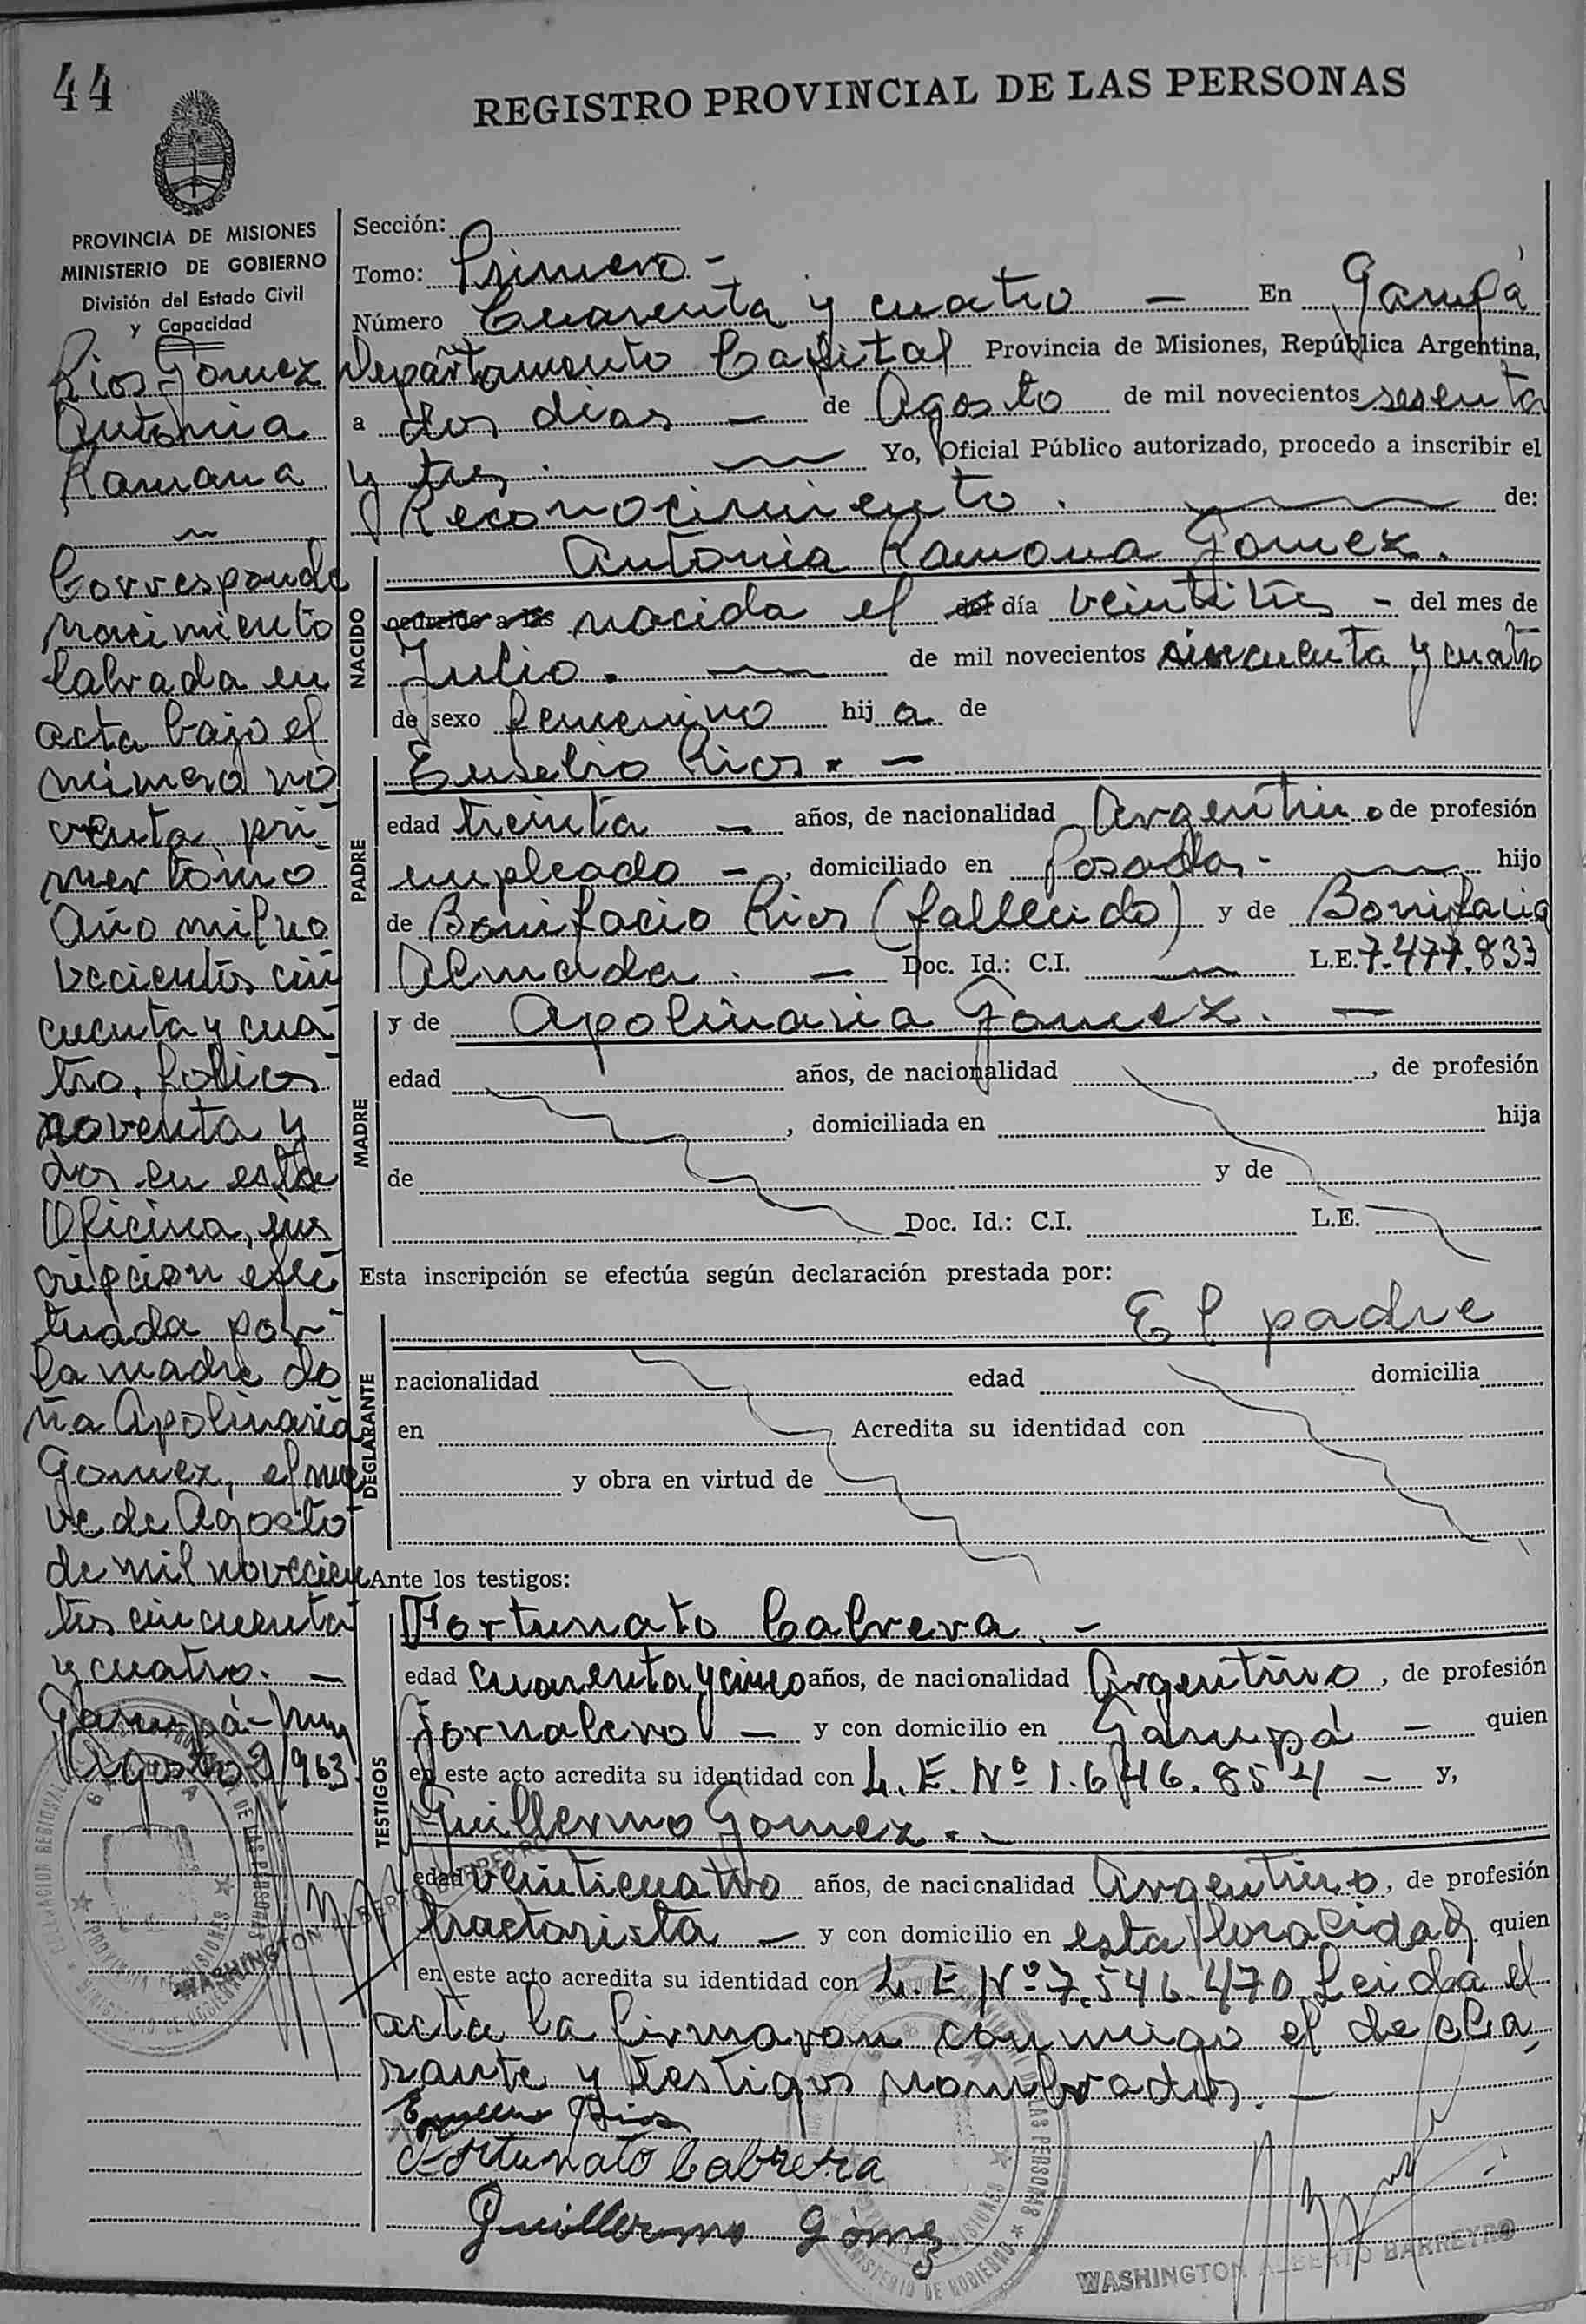 44
REGISTRO PROVINCIAL DE LAS PERSONAS
PROVINCIA DE MISIONES
MINISTERIO DE GOBIERNO
División del Estado Civil
y Capacidad
Rios Gomez
Antonia
Ramona
Corresponde
nacimiento
labrada en
acta bajo el
número no
venta, pri-
mer tomo
Año mil no
vecientos cin
cuenta y cua-
tro, folios
noventa y
dos en esta
Oficina, ins
cripcion efec
tuada por
la madre do
ña Apolinaria
Gomez, el nue
ve de Agosto
de mil novecien
tos cincuenta
y cuatro. —
Garupá-
Agosto 2/963.
Sección:
Tomo: Primero -
Número Cuarenta y cuatro — En Garupá
Departamento Capital Provincia de Misiones, República Argentina,
a dos días — de Agosto de mil novecientos sesenta
y tres. Yo, Oficial Público autorizado, procedo a inscribir el
Reconocimiento. de:
NACIDO
Antonia Ramona Gomez.
ocurrido a las nacida el del día veintitrés - del mes de
Julio. — de mil novecientos cincuenta y cuatro
de sexo femenino hij a de
PADRE
Eusebio Rios. —
edad treinta — años, de nacionalidad Argentino de profesión
empleado —, domiciliado en Posadas. hijo
de Bonifacio Rios (fallecido) y de Bonifacia
Almada. — Doc. Id.: C.I. — L.E. 7.477.833
MADRE
y de Apolinaria Gomez. —
edad años, de nacionalidad , de profesión
, domiciliada en hija
de y de
Doc. Id.: C.I. L.E.
Esta inscripción se efectúa según declaración prestada por:
DECLARANTE
El padre
nacionalidad edad domicilia
en Acredita su identidad con
y obra en virtud de
Ante los testigos:
TESTIGOS
Fortunato Cabrera. -
edad cuarenta y cinco años, de nacionalidad Argentino, de profesión
jornalero — y con domicilio en Garupá — quien
en este acto acredita su identidad con L.E. Nº 1.646.854 — y,
Guillermo Gomez. -
edad veinticuatro años, de nacionalidad Argentino, de profesión
tractorista — y con domicilio en esta localidad quien
en este acto acredita su identidad con L.E. Nº 7.546.470 Leida el
acta la firmaron conmigo el decla-
rante y testigos nombrados. —
Rios
Fortunato Cabrera
Guillermo Gómez
WASHINGTON ALBERTO BARREYRO
WASHINGTON ALBERTO BARREYRO